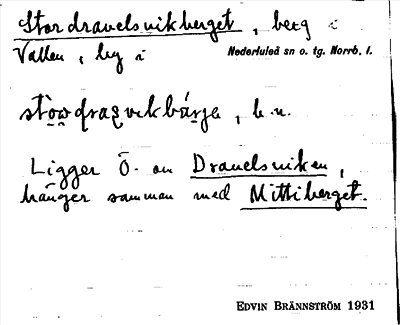 Stordravelsvikberget, berg i
Vallen, by i Nederluleå sn o. tg. Norrb. l.
b. n.
Ligger Ö. om Dravelsviken,
hänger samman med Mittiberget.
EDVIN BRÄNNSTRÖM 1931